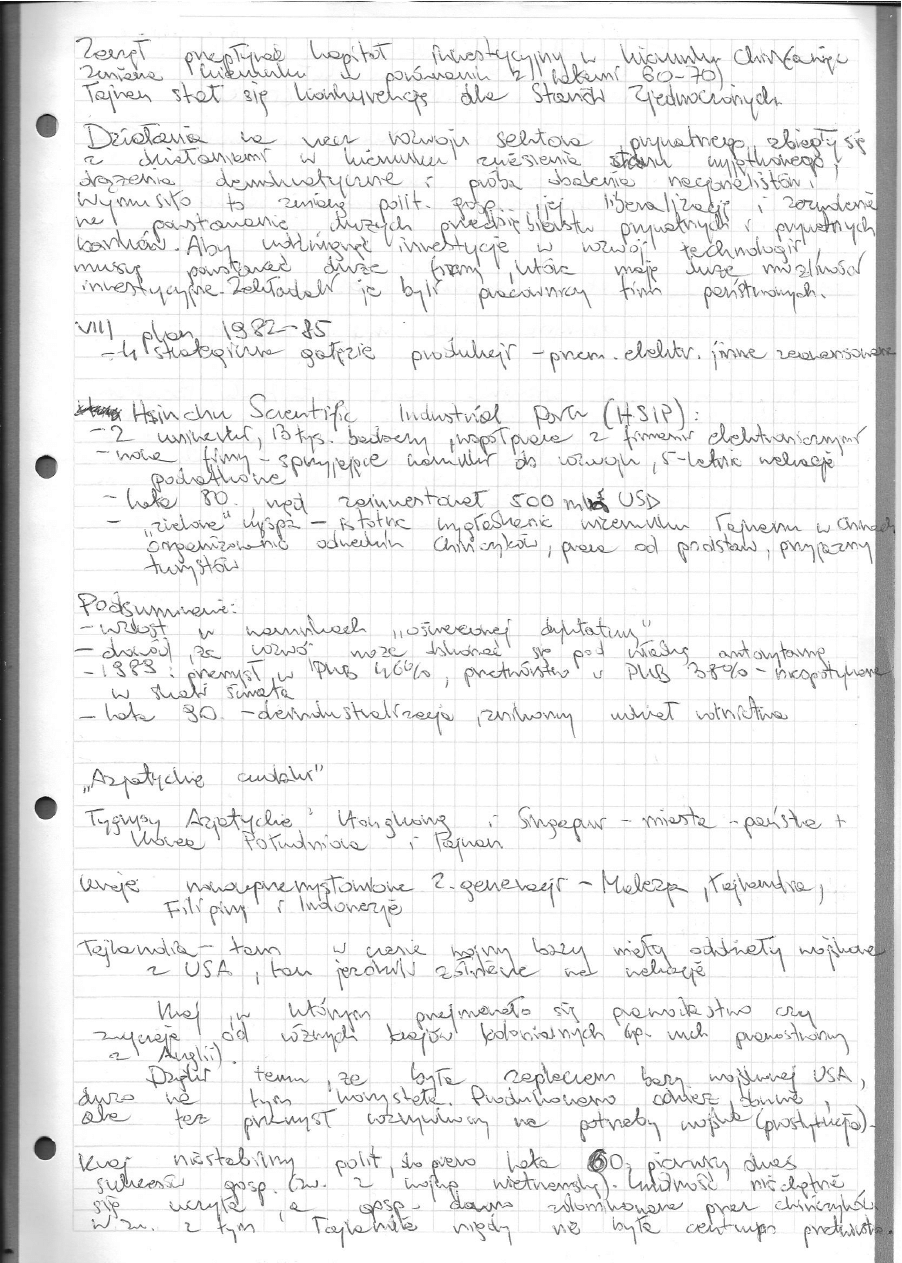 Zaczął przepływać kapitał inwestycyjny w kierunku Chin (zaszła
zmiana kierunku w porównaniu z latami 60-70)
Tajwan stał się konkurencją dla Stanów Zjednoczonych.
Działania na rzecz rozwoju sektora prywatnego zbiegły się
z działaniami w kierunku zniesienia stanu wyjątkowego,
dążenia demokratyczne i próba obalenia nacjonalistów.
Wymusiło to zmianę polit. gosp., jej liberalizację i zezwolenie
na powstawanie dużych przedsiębiorstw prywatnych i prywatnych
banków. Aby udźwignąć inwestycje w rozwój technologii,
muszą powstawać duże firmy, które mają duże możliwości
inwestycyjne. Zakładali je byli pracownicy firm państwowych.
VIII plan 1982-85
- 4 strategiczne gałęzie produkcji - przem. elektr. i inne zaawansowane
Hsinchu Scientific Industrial Park (HSIP):
- 2 uniwersytety, 13 tys. badaczy, współpraca z firmami elektronicznymi
- nowe firmy - sprzyjające warunki do rozwoju, 5-letnie wakacje
podatkowe
- lata 80. rząd zainwestował 500 mln USD
- "zielona" wyspa - istotne wizerunku Tajwanu w Chinach
organizowanie Chińczyków, praca od podstaw, przyjazny
turystów
Podsumowanie:
- wzrost w warunkach "oświeconej dyktatury"
- dowód, że rozwój może dokonać się pod władzą autorytarną
- 1989: przemysł w PKB 46%, przetwórstwo w PKB 38% - niespotykane
w skali świata
- lata 90. - deindustrializacja, znikomy udział rolnictwa
"Azjatyckie cuda"
Tygrysy Azjatyckie: Hongkong i Singapur - miasta-państwa +
Korea Południowa i Tajwan
Kraje nowouprzemysłowione 2. generacji - Malezja, Tajlandia,
Filipiny i Indonezja
Tajlandia - tam w czasie wojny bazy miały oddziały wojskowe
z USA, tam jeździli żołnierze na wakacje
Kraj, w którym przejmowało się prawodawstwo czy
zwyczaje od różnych krajów kolonialnych (np. ruch prawostronny
z Anglii).
Dzięki temu, że była zapleczem bazy wojskowej USA,
dużo na tym korzystała. Produkowano odzież, obuwie,
ale też przemysł rozrywkowy na potrzeby wojska (prostytucja).
Kraj niestabilny polit, dopiero lata 60. pierwszy okres
sukcesów gosp. (zw. z wojną wietnamską). Ludność niechętnie
się uczyła, a gosp. dawno zdominowana przez Chińczyków.
W zw. z tym Tajlandia nigdy nie była centrum przetwórstwa.